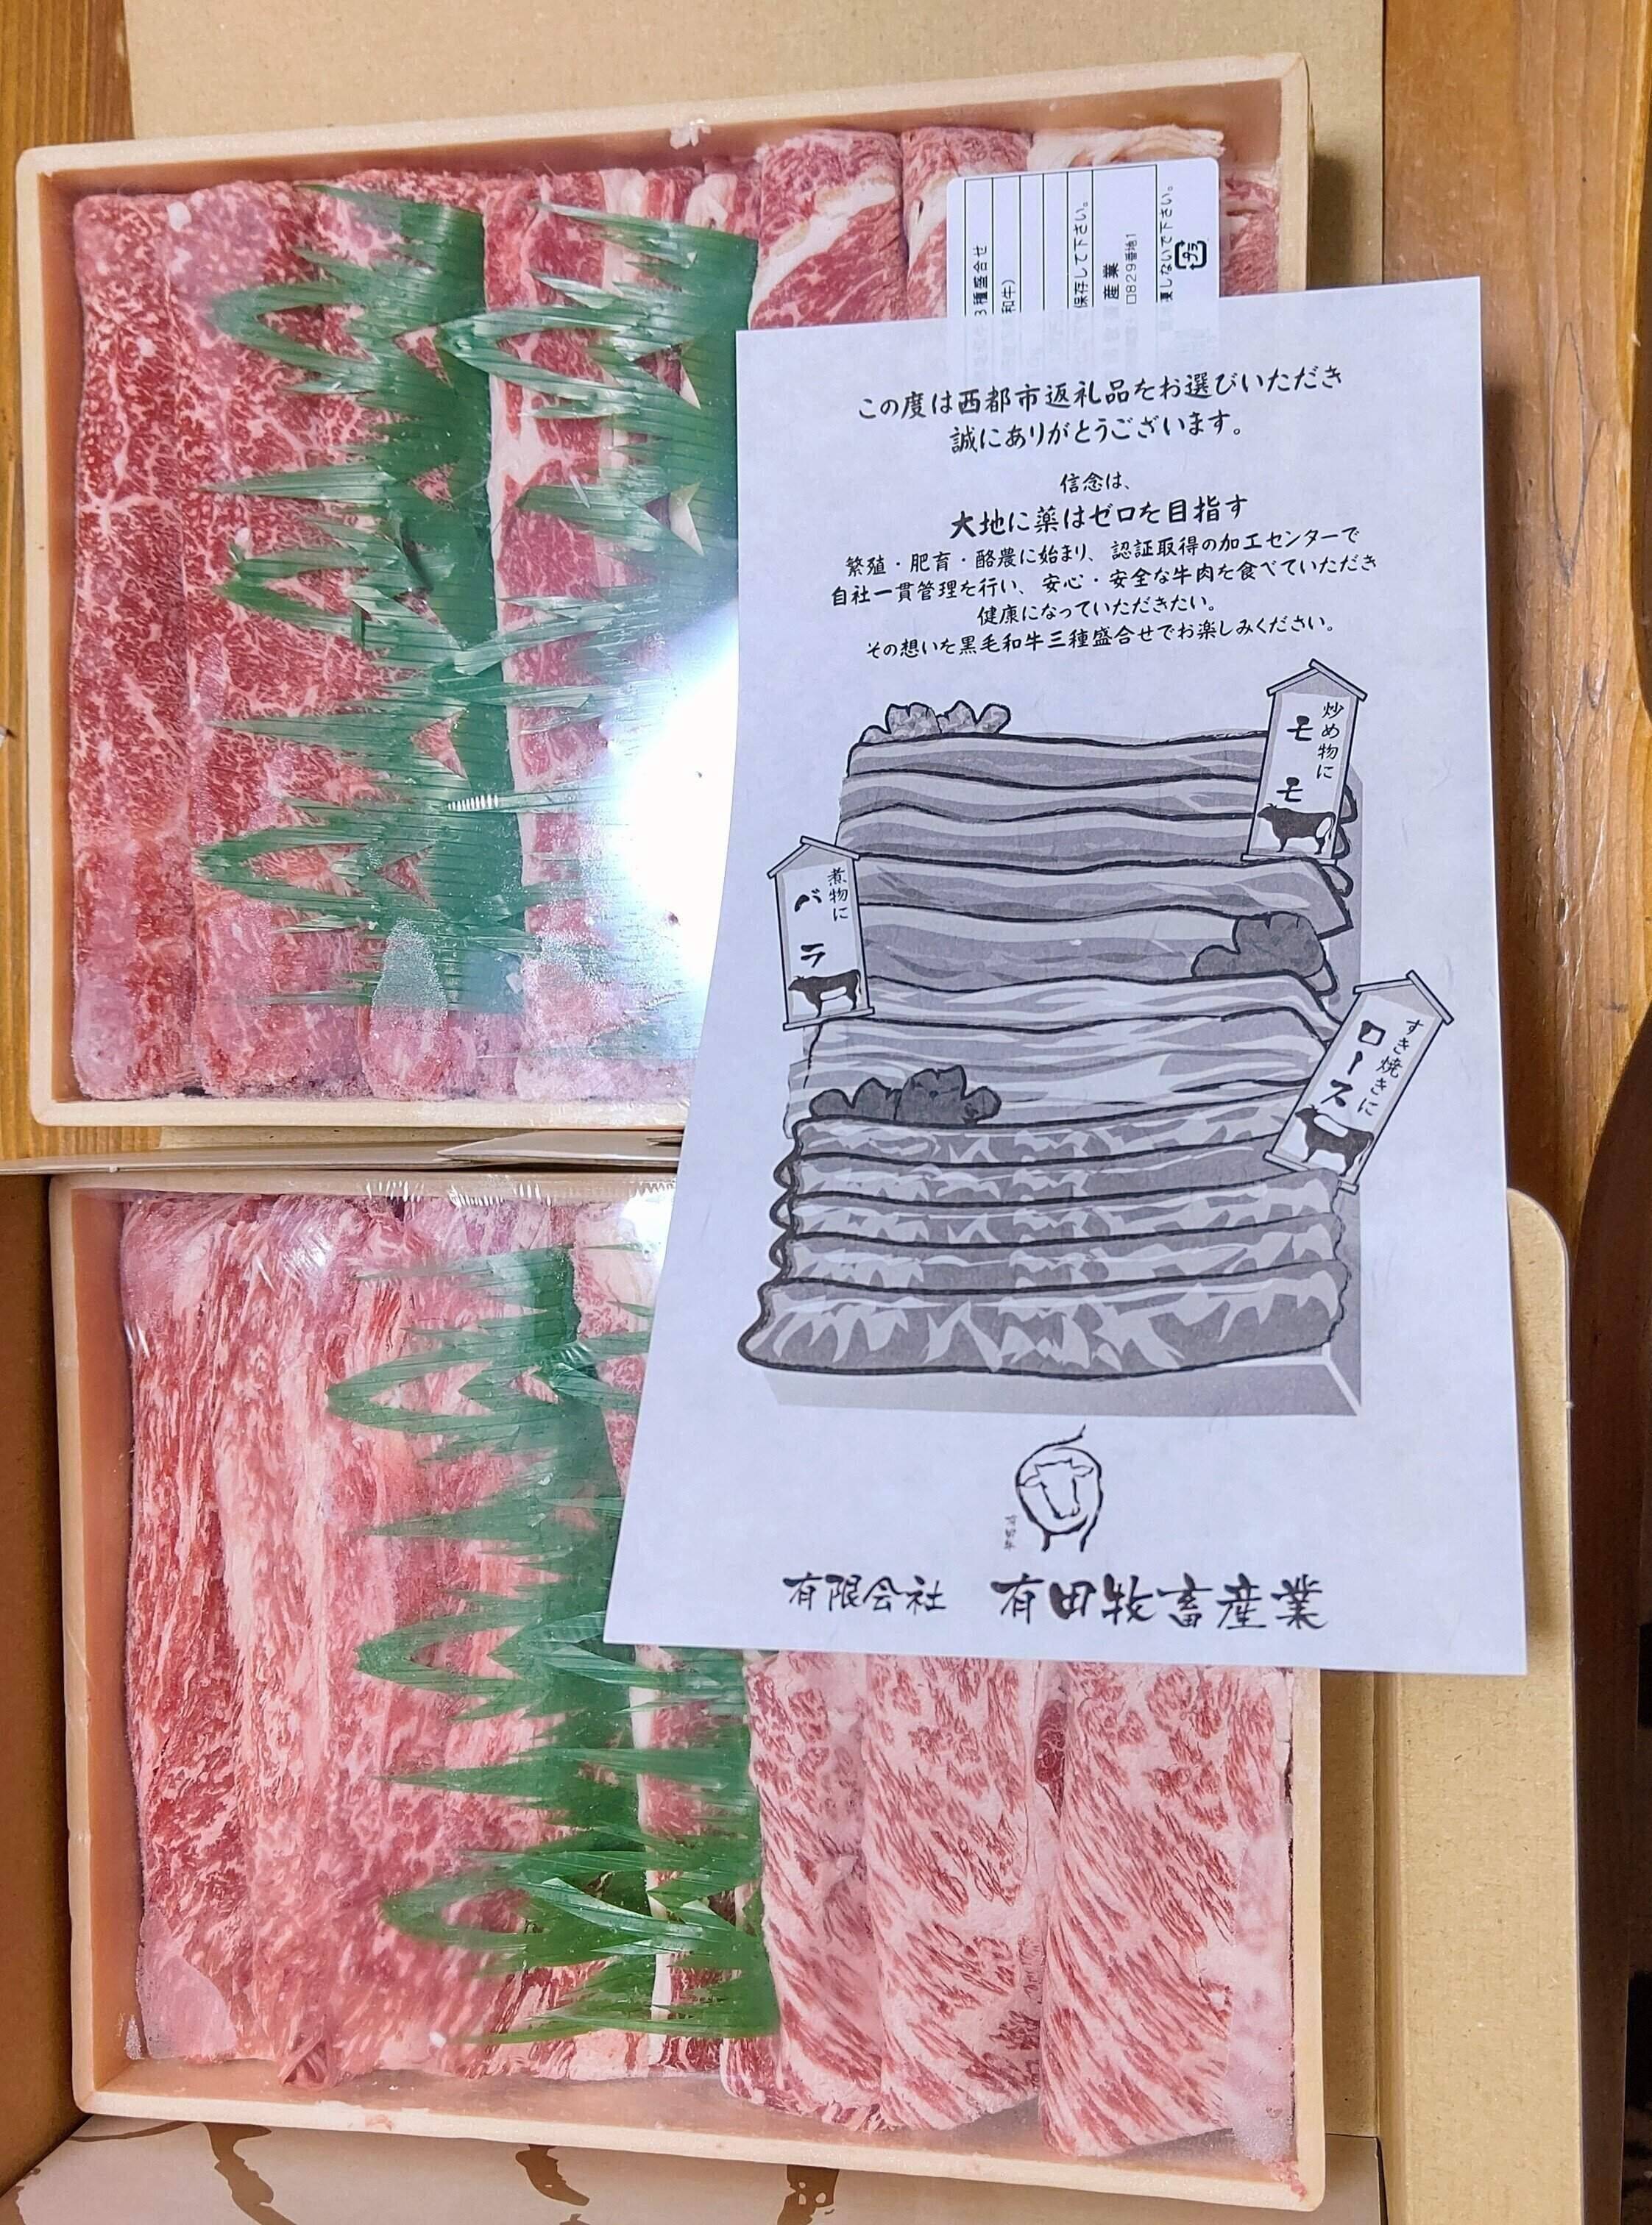 3種盛合せ
和牛)
保存して下さい。
産業
829番地1
凍しないで下さい。
プラ
この度は西都市返礼品をお選びいただき
誠にありがとうございます。
信念は、
大地に薬はゼロを目指す
繁殖・肥育・酪農に始まり、認証取得の加工センターで
自社一貫管理を行い、安心・安全な牛肉を食べていただき
健康になっていただきたい。
その想いを黒毛和牛三種盛合せでお楽しみください。
炒め物に
モモ
煮物に
バラ
すき焼きに
ロース
有限会社 有田牧畜産業